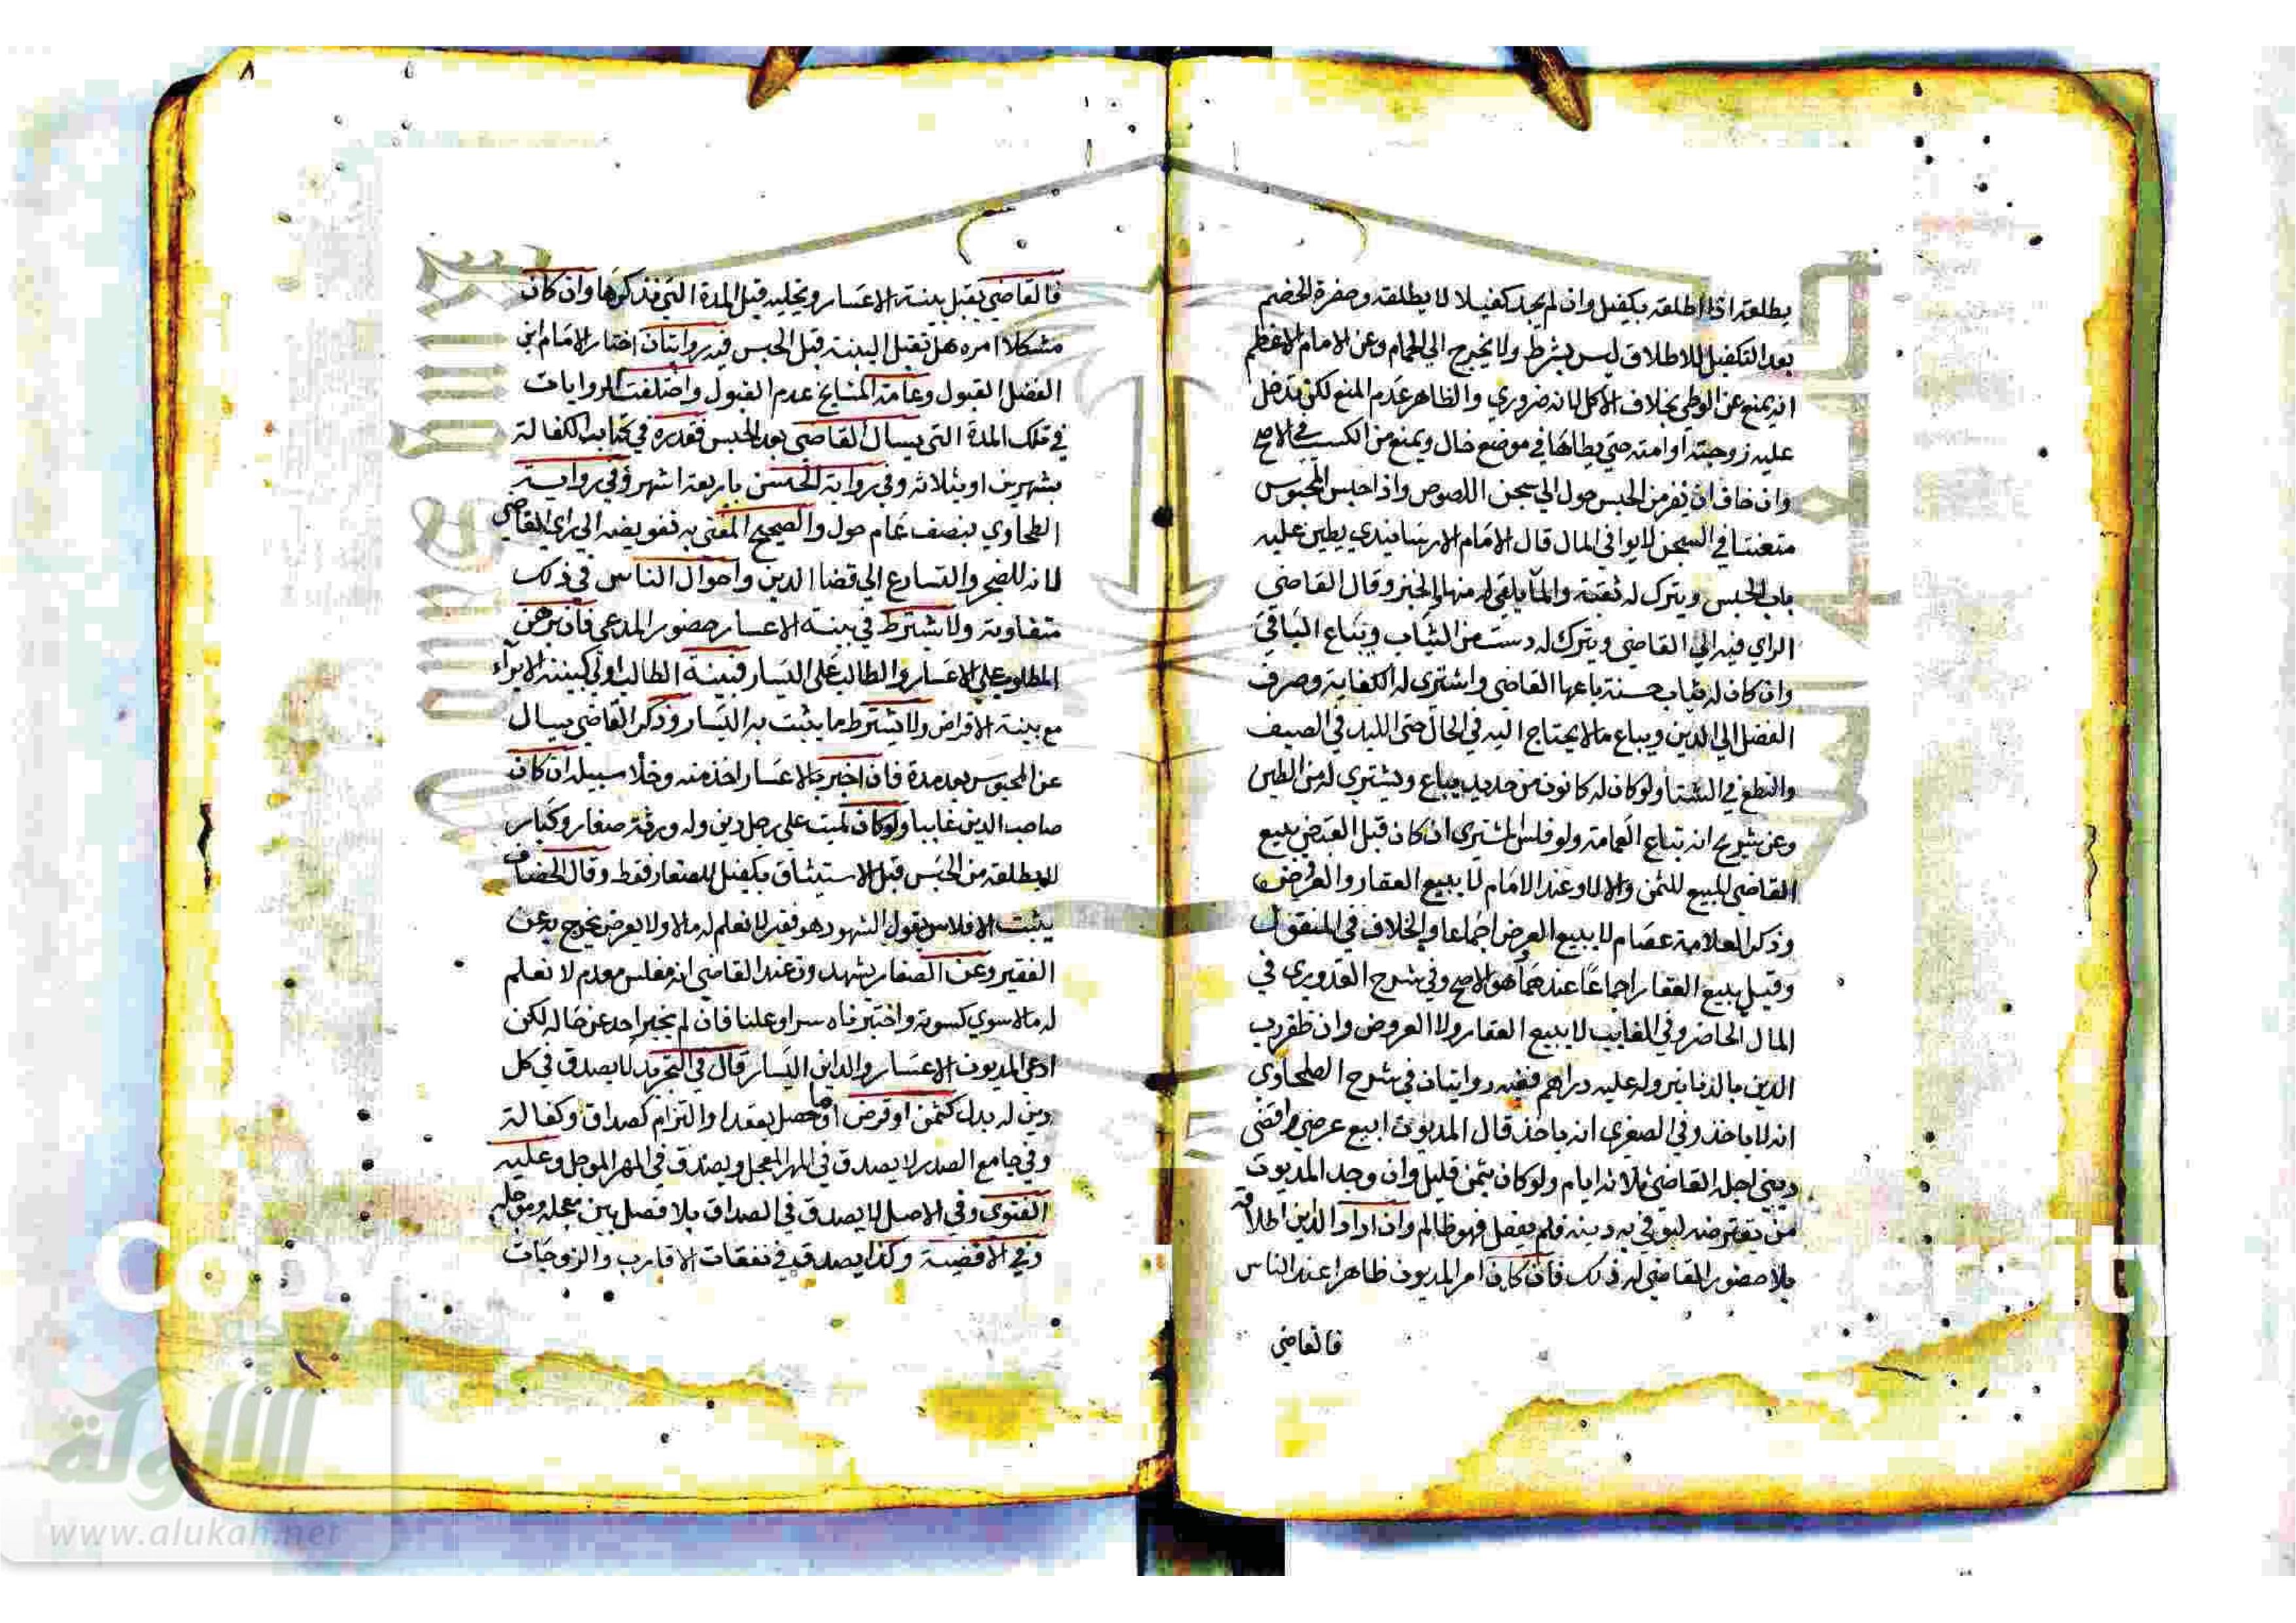 يطلقه اذا اطلقه بكفيل وان لم يجد كفيلا لا يطلقه وحضرة الخصم
بعد التكفيل للاطلاق ليس بشرط ولا يخرج الى الحمام وعن الامام الاعظم
انه يمنع عن الوطى بخلاف الاكل لانه ضروري والظاهر عدم المنع لكن تدخل
عليه زوجته او امته حتى يطاها في موضع خال ويمنع من الكسب في الاصح
وان خاف ان يفر من الحبس حول الى سجن اللصوص واذا حبس المحبوس
متعنتا في السجن لا يوافي المال قال الامام الارسابندي يطين عليه
باب الحبس ويترك له ثقبة والما يلقى له منها والخبز وقال القاضي
الراي فيه الى القاضي ويترك له دست من الثياب وتباع الباقي
وان كان له ثياب حسنة باعها القاضي واشترى له الكفاية وصرف
الفضل الى الدين ويباع ما لا يحتاج اليه في الحال حتى اللبد في الصيف
والنطع في الشتا ولو كان له كانون من حديد يباع ويشتري له من الطين
وعن شريح انه تباع العمامة ولو فلس المشتري ان كان قبل القبض يبيع
القاضي المبيع للثمن والا لا وعند الامام لا يبيع العقار والعرض
وذكر العلامة عصام لا يبيع العرض اجماعا والخلاف في المنقول
وقيل يبيع العقار اجماعا عندهما هو الاصح وفي شرح القدوري في
المال الحاضر وفي الغايب لا يبيع العقار ولا العروض وان ظفر رب
الدين بالدنانير وله عليه دراهم ففيه روايتان في شرح الطحاوي
انه لا ياخذ وفي الصغرى انه ياخذ قال المديون ابيع عرضي واقضي
ديني اجله القاضي ثلاثة ايام ولو كان بثمن قليل وان وجد المديون
من يقترضه ليوفي به دينه فلم يفعل فهو ظالم وان اراد الدين اطلاقه
بلا حضور القاضي له ذلك فان كان امر المديون ظاهرا عند الناس
فالقاضي
٨
فالقاضي يقبل بينة الاعسار ويخليه قبل المدة التي نذكرها وان كان
مشكلا امره هل تقبل البينة قبل الحبس فيه روايتان اختار الامام ابن
الفضل القبول وعامة المشايخ عدم القبول واختلفت الروايات
في تلك المدة التي يسال القاضي بعد الحبس فقدره في كتاب الكفالة
بشهرين او بثلاثة وفي رواية الحسن باربعة اشهر وفي رواية
الطحاوي بنصف عام حول والصحيح المفتى به تفويضه الى راي القاضي
لانه للضجر والتسارع الى قضا الدين واحوال الناس في ذلك
متفاوتة ولا يشترط في بينة الاعسار حضور المدعي فان برهن
المطلوب على الاعسار والطالب على اليسار فبينة الطالب اولى كبينة الابراء
مع بينة الاقراض ولا يشترط ما يثبت به اليسار وذكر القاضي يسال
عن المحبوس بعد مدة فان اخبر بالاعسار اخذ منه وخلا سبيله ان كان
صاحب الدين غايبا ولو كان لميت على رجل دين وله ورثة صغار وكبار
لا يطلقه من الحبس قبل الاستيثاق بكفيل للصغار فقط وقال الخصاف
يثبت الافلاس بقول الشهود هو فقير لا نعلم له مالا ولا يعرض يخرج به عن
الفقير وعن الصفار يشهدون عند القاضي انه مفلس معدم لا نعلم
له مالا سوى كسوته واختبرناه سرا وعلنا فان لم يخبر احد عن حاله لكن
ادعى المديون الاعسار والداين اليسار قال في التجريد لا يصدق في كل
دين له بدل كثمن او قرض او ما حصل بعقد او التزام كصداق وكفالة
وفي جامع الصدر لا يصدق في المهر المعجل ويصدق في المهر الموجل وعليه
الفتوى وفي الاصل لا يصدق في الصداق بلا فصل بين معجله وموجله
وفي الاقضية وكذا يصدق في نفقات الاقارب والزوجات
الألوكة
www.alukah.net